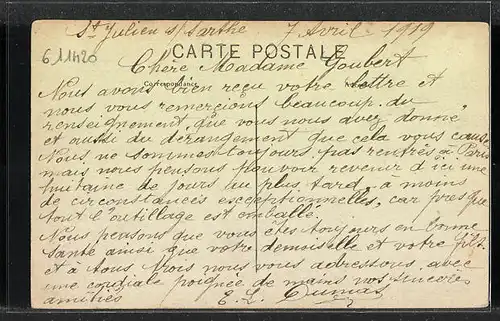 St Julien s/Sarthe 7 Avril 1919
611420
CARTE POSTALE
Chère Madame Goubert
Correspondance
Nous avons bien reçu votre lettre et
nous vous remerçions beaucoup du
renseignement que vous nous avez donné
et aussi du dérangement que cela vous cause
Nous ne sommes toujours pas rentrés à Paris
mais nous pensons pouvoir revenir d'ici une
huitaine de jours au plus tard, a moins
de circonstances exceptionnelles, car presque
tout l'outillage est emballé.
Nous pensons que vous êtes toujours en bonne
santé ainsi que votre demoiselle et votre fils
et à tous trois nous vous adressons, avec
une cordiale poignée de mains nos sincères
amitiés E. L. Dumas